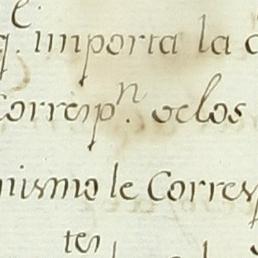 q.e importa la
Corresp.n delos
mismo le Corresp
tes